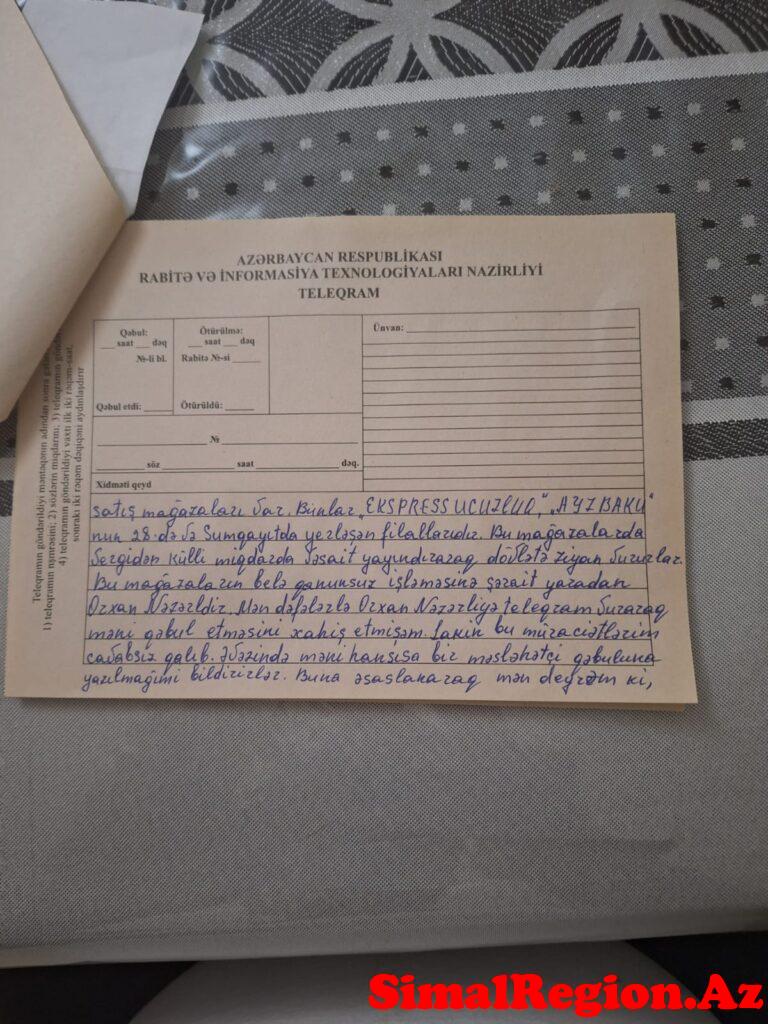 AZƏRBAYCAN RESPUBLİKASI
RABİTƏ VƏ İNFORMASİYA TEXNOLOGİYALARI NAZİRLİYİ
TELEQRAM
Qəbul:
___ saat ___ dəq
№-li bl.
Qəbul etdi: ______
Ötürülmə:
___ saat ___ dəq
Rabitə №-si ______
Ötürüldü: ______
Ünvan:
№
söz saat dəq.
Xidməti qeyd
Teleqramın göndərildiyi məntəqənin adından sonra
1) teleqramın nömrəsini; 2) sözlərin miqdarını; 3) teleqramın
4) teleqramın göndərildiyi vaxtı ilk iki rəqəm-saat,
sonrakı iki rəqəm dəqiqəni aydınlaşdırır
satış mağazaları var. Bunlar „EKSPRESS UCUZLUQ," „AYZBAKU"
nun 28-də və Sumqayıtda yerləşən filallarıdır. Bu mağazalarda
Vergidən külli miqdarda vəsait yayındıraraq dövlətə ziyan vururlar.
Bu mağazaların belə qanunsuz işləməsinə şərait yaradan
Orxan Nəzərldir. Mən dəfələrlə Orxan Nəzərliyə teleqram vuraraq
məni qəbul etməsini xahiş etmişəm. Lakin bu müraciətlərim
cavabsız qalıb. Əvəzində məni hansısa bir məsləhətçi qəbuluna
yazılmağımı bildirirlər. Buna əsaslanaraq mən deyrəm ki,
SimalRegion.Az